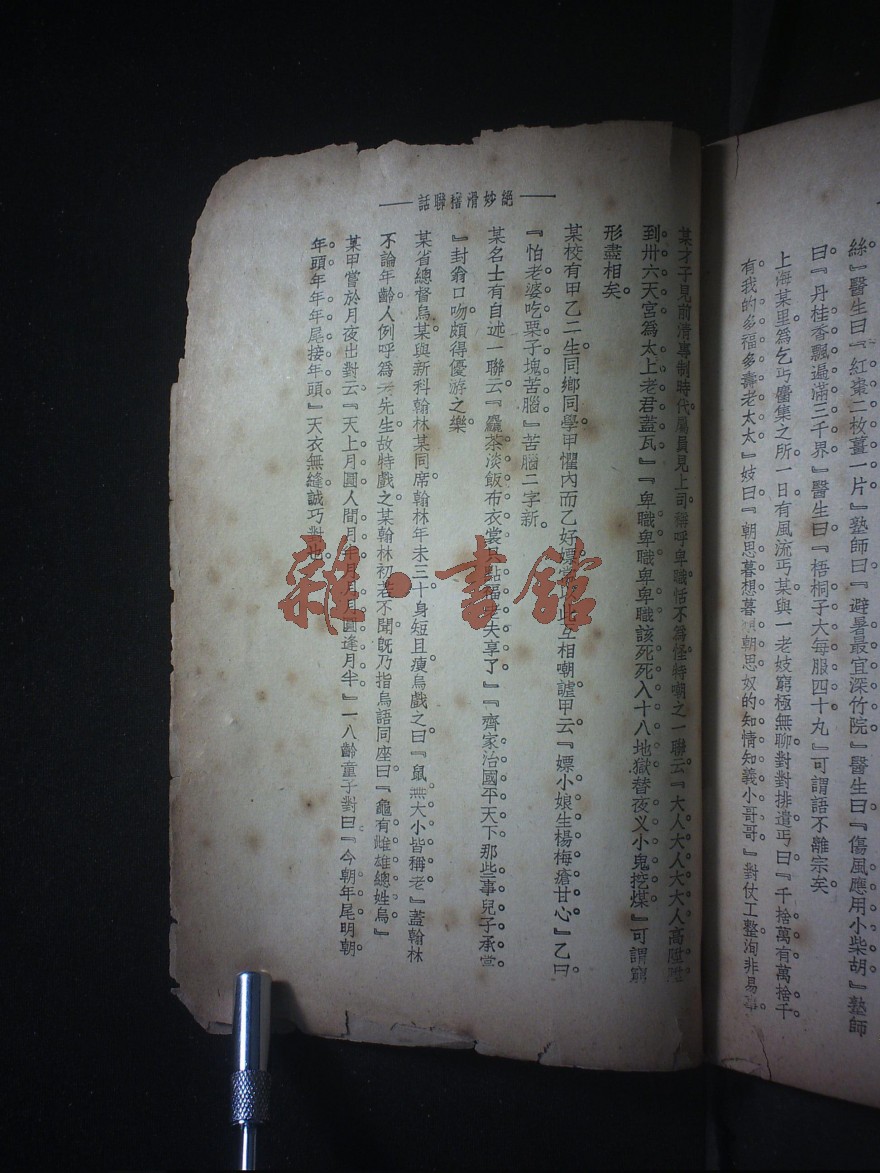 絲』醫生曰『紅棗二枚薑一片』塾師曰『避暑最宜深竹院』醫生曰『傷風應用小柴胡』塾師
曰『丹桂香飄遍滿三千界』醫生曰『梧桐子大每服四十丸』可謂語不離宗矣
上海某里爲乞丐麕集之所一日有風流丐某與一老妓窮極無聊對對排遣丐曰『千捨萬有萬捨千
有我的多福多壽老太太』妓曰『朝思暮想暮朝思奴的知情知義小哥哥』對仗工整洵非易事
絕妙滑稽聯話
某才子見前清專制時代屬員見上司辭呼卑職恬不爲怪特嘲之一聯云『大人大人大大人高陞陞
到卅六天宮爲太上老君蓋瓦』『卑職卑職卑卑職該死死入十八地獄替夜叉小鬼挖煤』可謂窮
形盡相矣
某校有甲乙二生同鄉同學甲懼內而乙好嫖嘗以此互相嘲謔甲云『嫖小娘生楊梅瘡甘心』乙曰
『怕老婆吃栗子塊苦腦』苦腦二字新
某名士有自述一聯云『麤茶淡飯布衣裳點福老夫享了』『齊家治國平天下那些事兒子承當
』封翁口吻頗得優游之樂
某省總督烏某與新科翰林某同席翰林年未三十身短且瘦烏戲之曰『鼠無大小皆稱老』蓋翰林
不論年齡人例呼爲老先生故特戲之某翰林初若不聞旣乃指烏語同座曰『龜有雌雄總姓烏』
某甲嘗於月夜出對云『天上月圓人間月半月月月圓逢月半』一八齡童子對曰『今朝年尾明朝
年頭年年年尾接年頭』天衣無縫誠巧對也
雜·書館